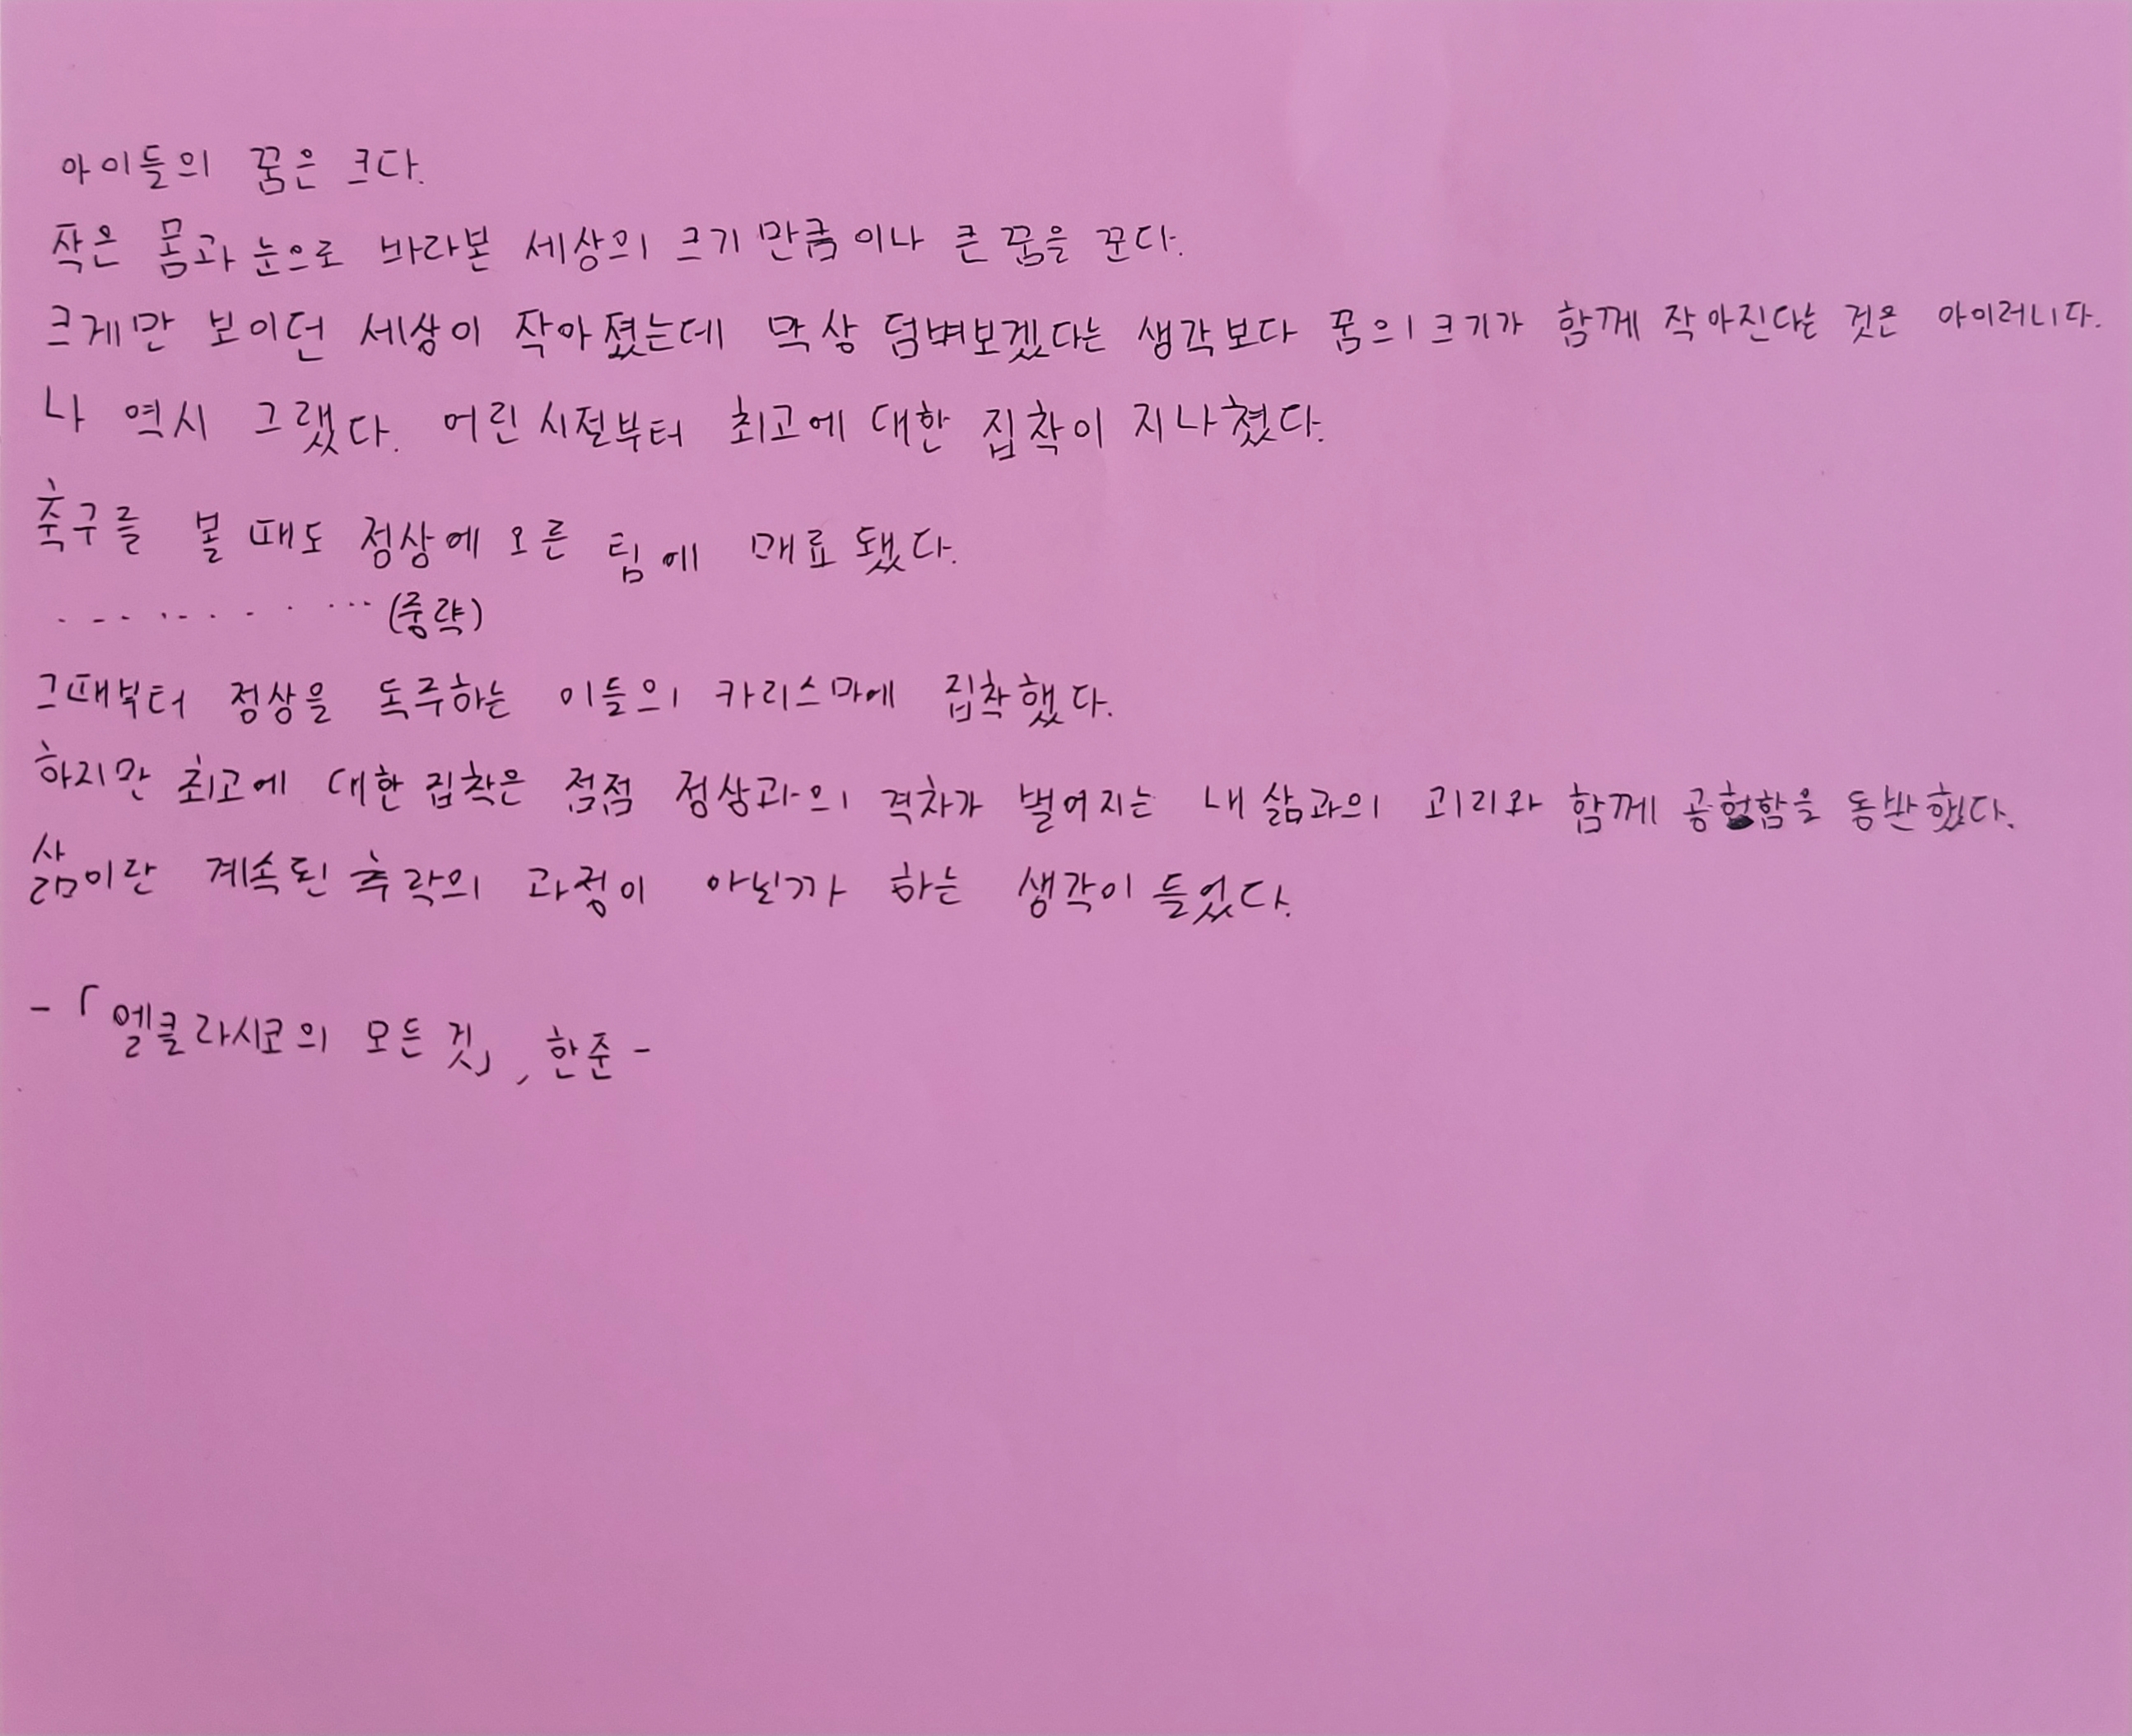 아이들의 꿈은 크다.
작은 몸과 눈으로 바라본 세상의 크기만큼이나 큰 꿈을 꾼다.
크게만 보이던 세상이 작아졌는데 막상 덤벼보겠다는 생각보다 꿈의 크기가 함께 작아진다는 것은 아이러니다.
나 역시 그랬다. 어린시절부터 최고에 대한 집착이 지나쳤다.
축구를 볼 때도 정상에 오른 팀에 매료됐다.
............ (중략)
그때부터 정상을 독주하는 이들의 카리스마에 집착했다.
하지만 최고에 대한 집착은 점점 정상과의 격차가 벌어지는 내 삶과의 괴리와 함께 공허함을 동반했다.
삶이란 계속된 추락의 과정이 아닌가 하는 생각이 들었다.
-「엘클라시코의 모든 것」, 한준-